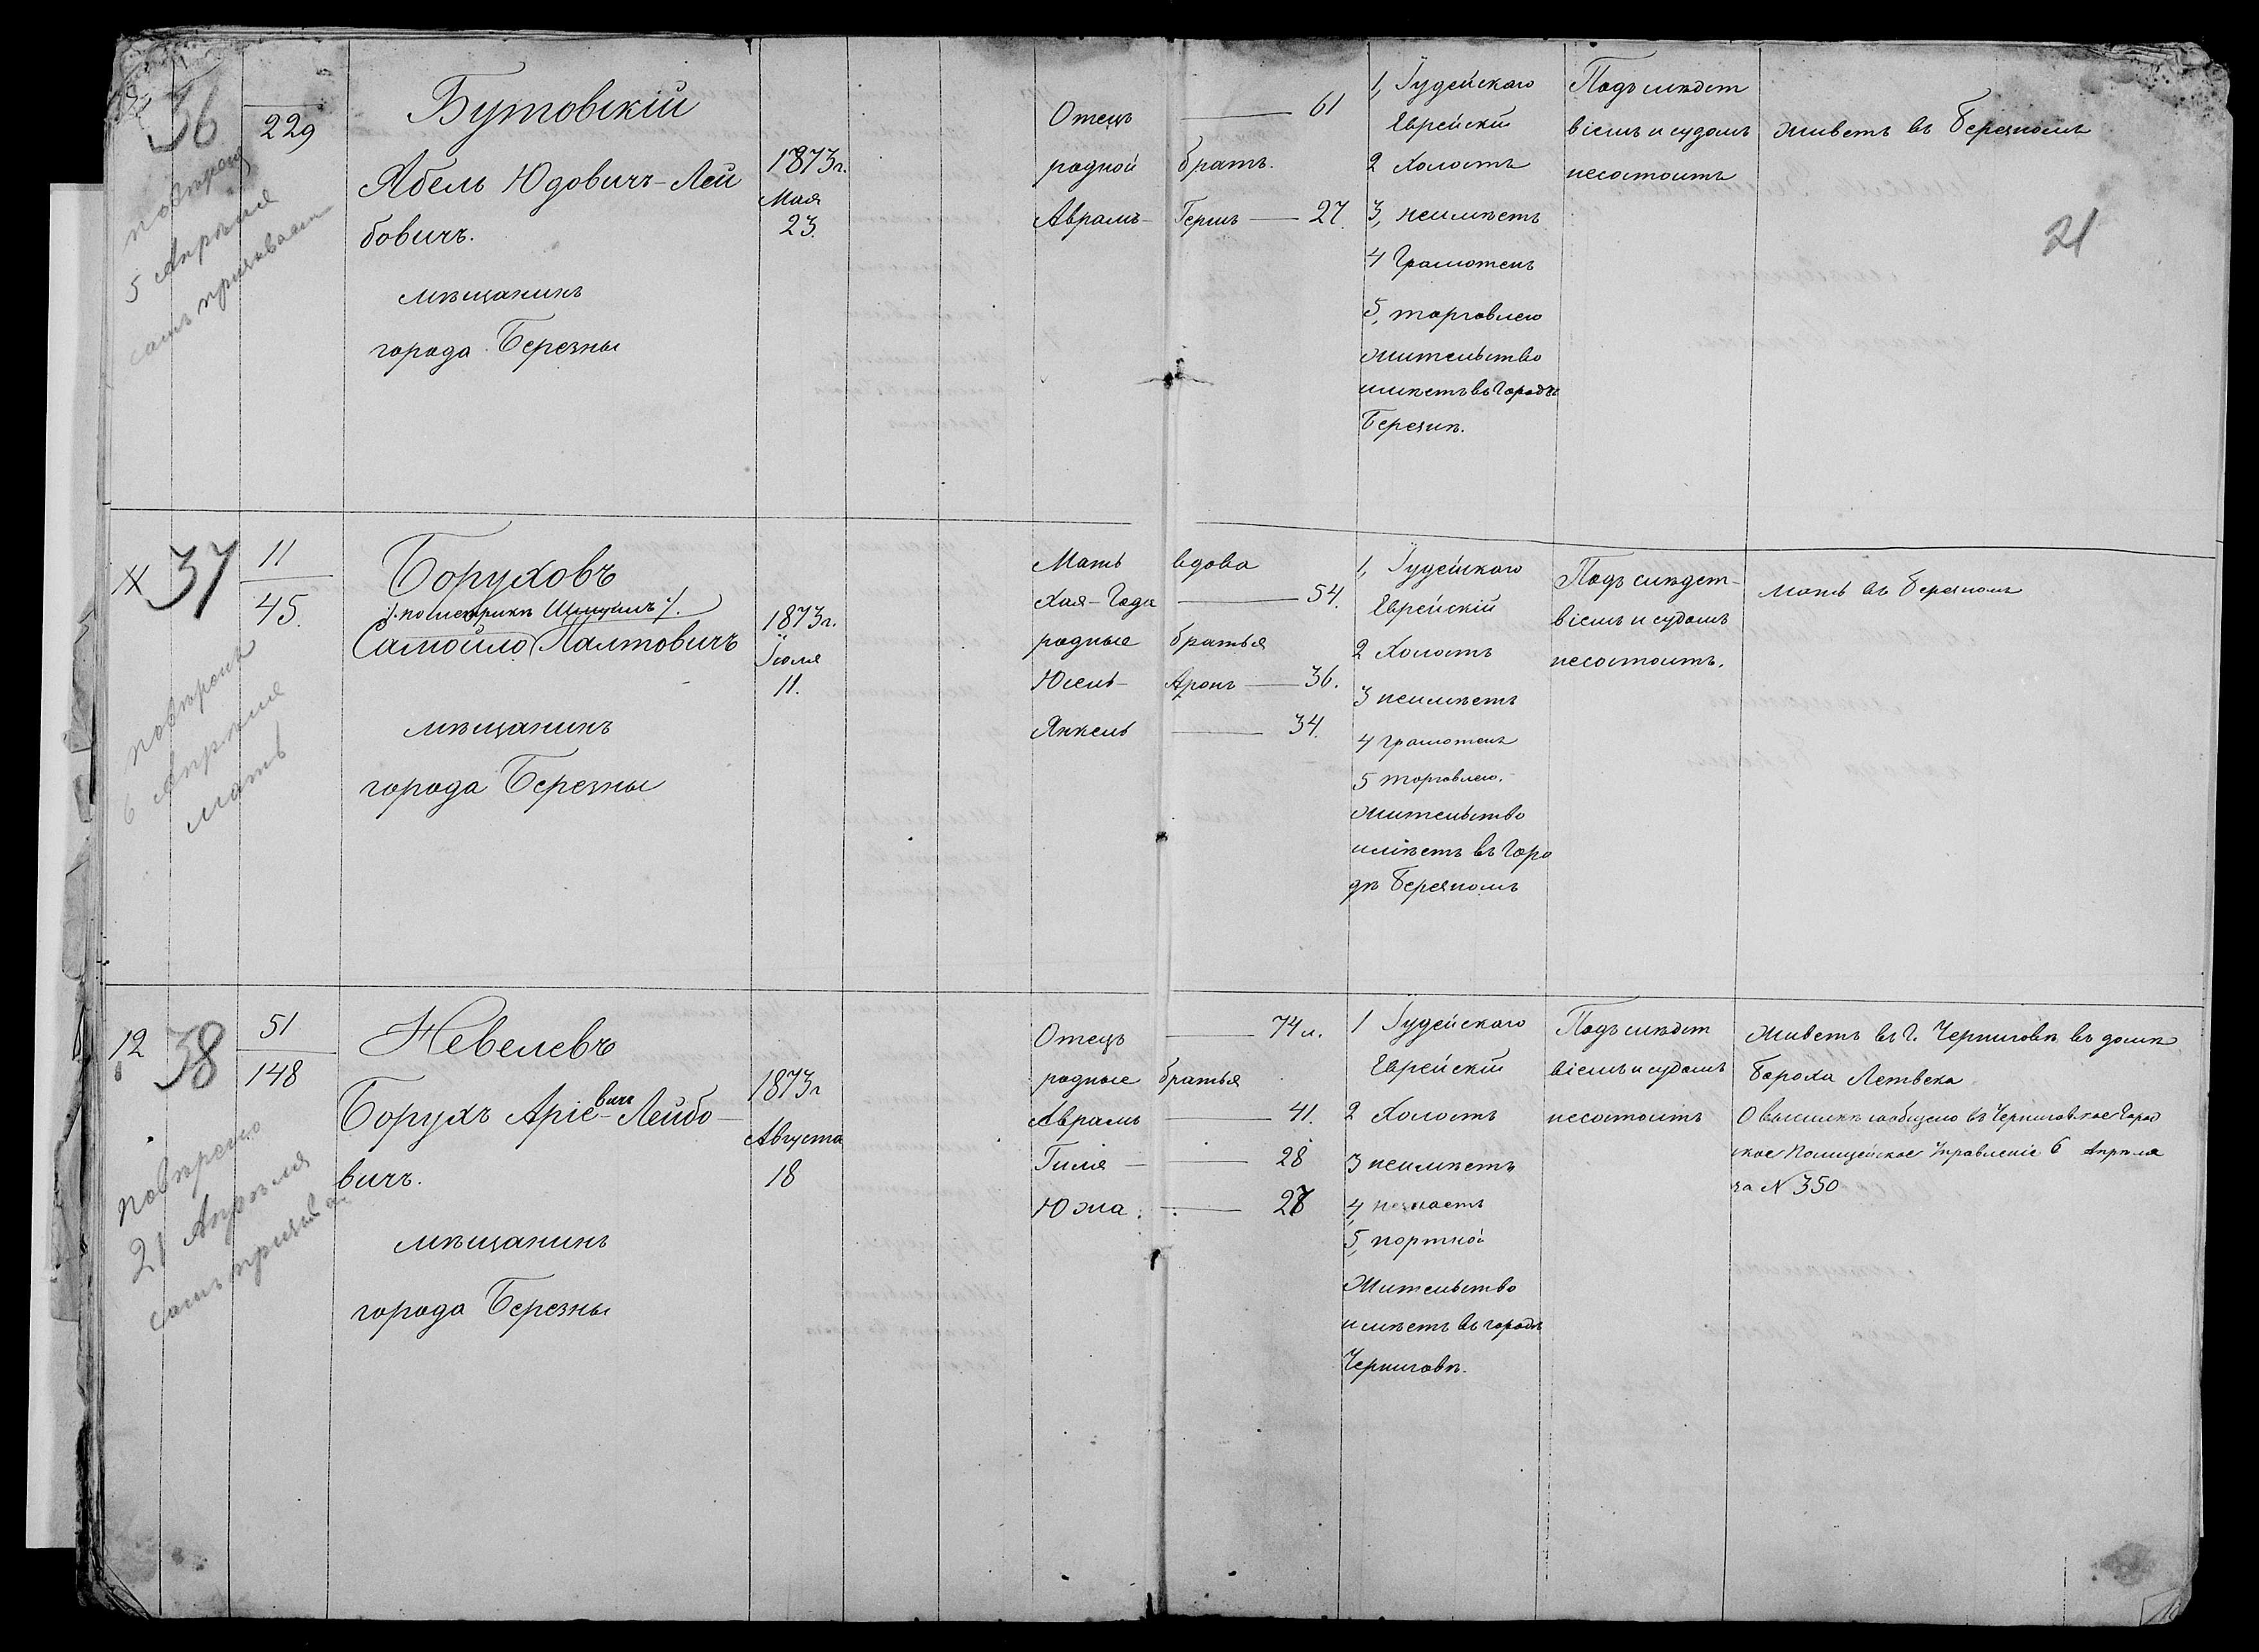 36
229
Бутовскій
Абель Юдовичъ-Лей
бовичъ.
мѣщанинъ
города Березны
1873г.
Мая
23.
Отецъ 61
родной братъ.
Аврамъ- Гершъ 27.
1, Іудейскаго
Еврейскій
2 Холостъ
3, неимѣетъ
4 Грамотенъ
5, торговлею
жительство
имѣетъ въ Городѣ
Березнѣ.
Подъ слѣдст
віемъ и судомъ
несостоитъ
живетъ въ Березномъ
21
5 Апрѣля
самъ
37
11
45.
Боруховъ
/. по метрикѣ Шмуилъ /.
Самойло Палтовичъ
мѣщанинъ
города Березны
1873г.
Іюля
11.
Мать вдова
Хая-Года 54.
родные братья
Юсель- Аронъ 36.
Янкель 34.
1, Іудейскаго
Еврейскій
2 Холостъ
3 неимѣетъ
4 грамотенъ
5 торговлею.
жительство
имѣетъ въ Горо
дѣ Березномъ
Подъ слѣдст-
віемъ и судомъ
несостоитъ.
мать въ Березномъ
6 Апрѣля
мать
12
38
51
148
Невелевъ
Борухъ Аріевичъ-Лейбо-
вичъ.
мѣщанинъ
города Березны
1873г
Августа
18
Отецъ 74 л.
родные братья
Аврамъ 41.
Гиля 28
Южа 27
1 Іудейскаго
Еврейскій
2 Холостъ
3 неимѣетъ
4,
5, портной
Жительство
имѣетъ въ городѣ
Черниговѣ.
Подъ слѣдст
віемъ и судомъ
несостоитъ
живетъ въ Г. Черниговѣ въ домѣ
Бороха
О высылкѣ сообщено въ Черниговское Город
ское Полицейское Управленіе 6 Апрѣля
за N 350
повѣрено
21 Апрѣля
самъ